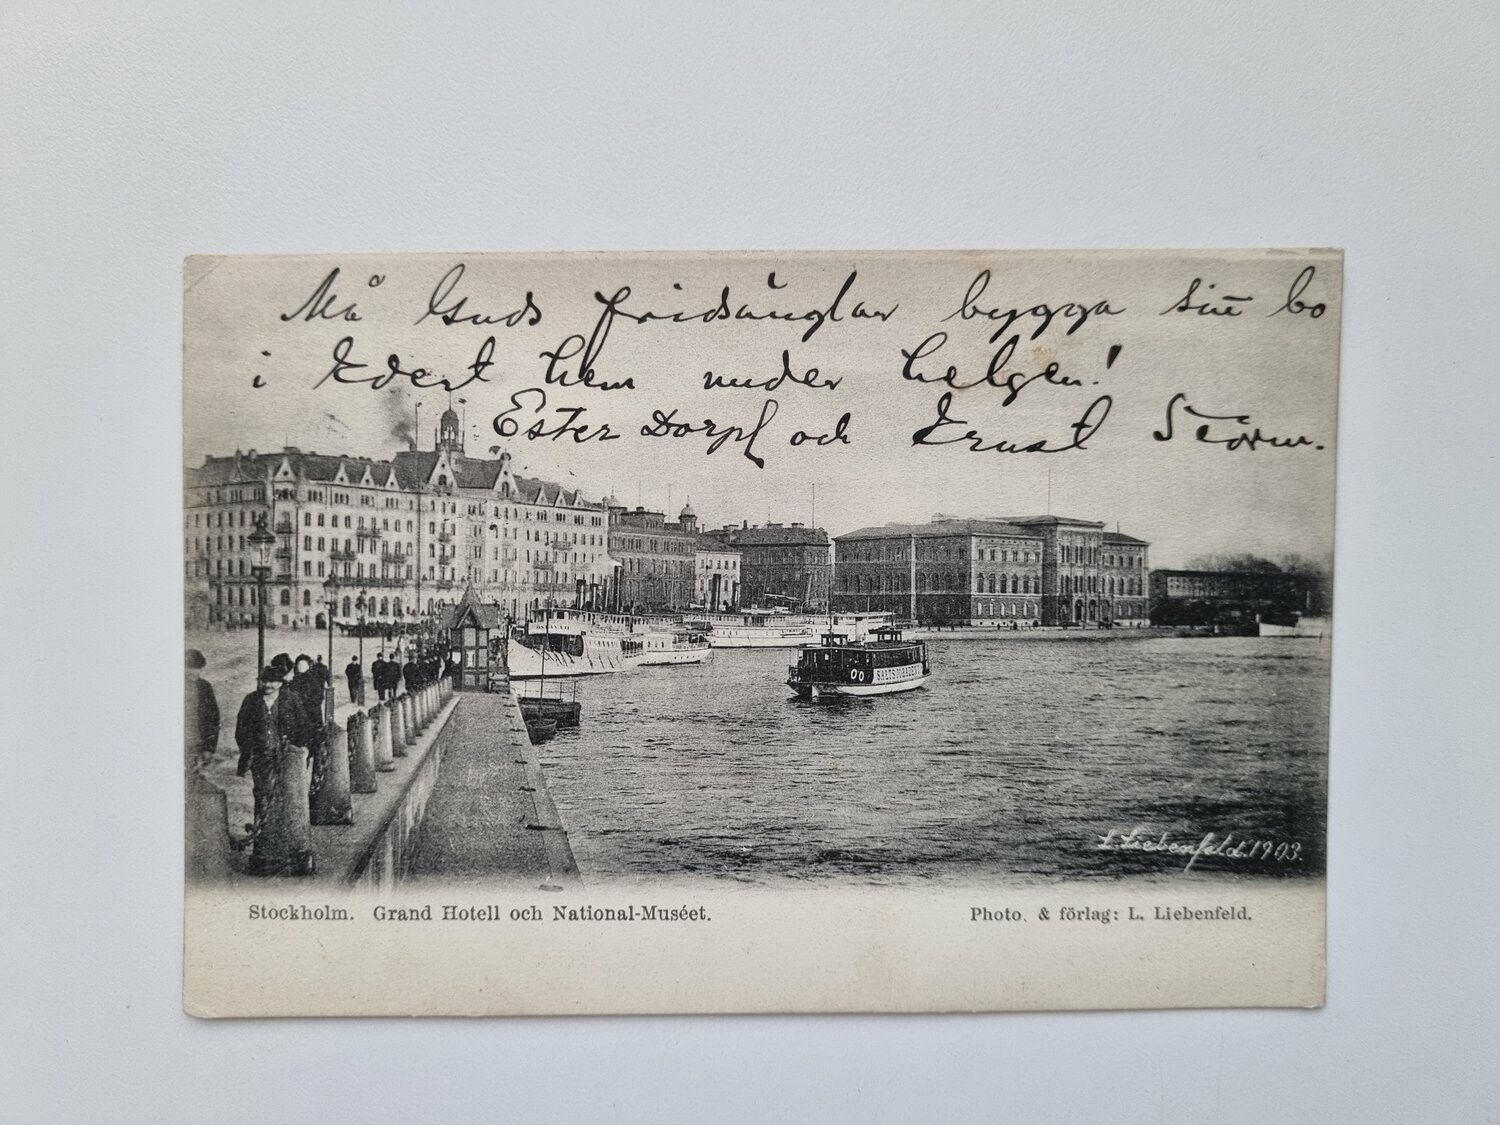 Må Guds fridsänglar bygga sitt bo
i Edert hem under helgen!
Ester Dorph och Ernst Storm.
SALTSJOBADEN
L. Liebenfeld. 1903.
Stockholm. Grand Hotell och National-Muséet.
Photo. & förlag: L. Liebenfeld.